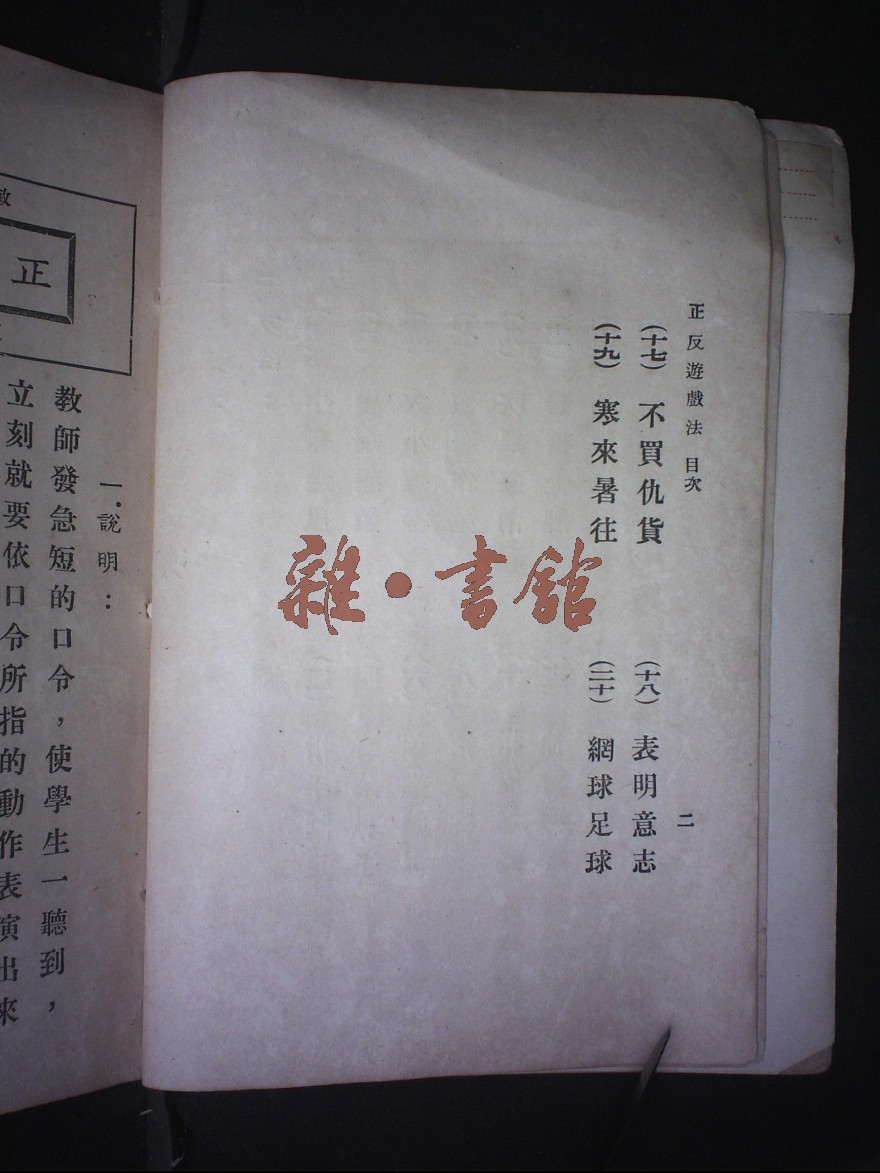 正反遊戲法 目次 二
(十七) 不買仇貨 (十八) 表明意志
(十九) 寒來暑往 (二十) 網球足球
雜·書館
正
一.說明:
教師發急短的口令,使學生一聽到,
立刻就要依口令所指的動作表演出來